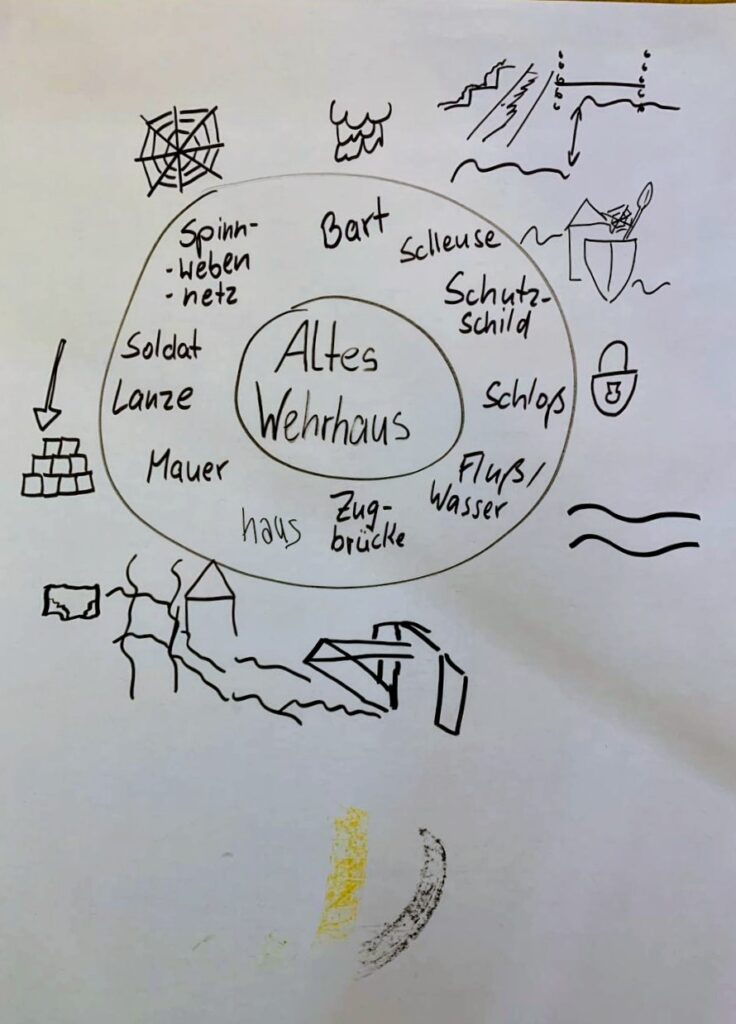 Altes
Wehrhaus
Bart
Slleuse
Schutz-
schild
Schloß
Fluß/
Wasser
Zug-
brücke
haus
Mauer
Lanze
Soldat
Spinn-
- weben
- netz